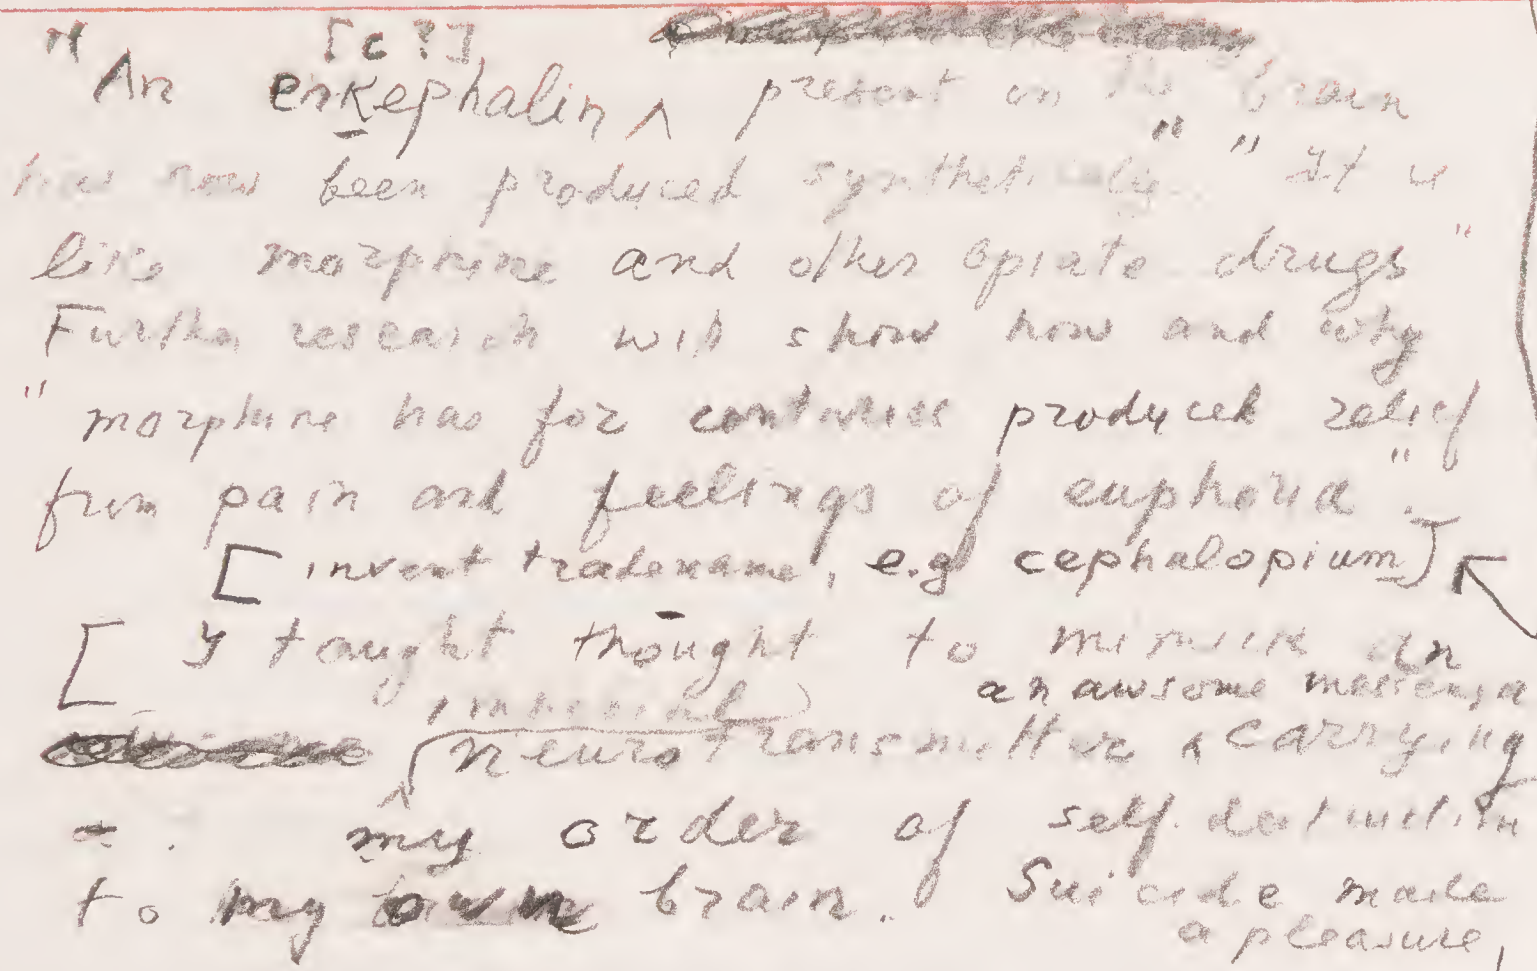 [c?]
"An enkephalin ^ present in the brain
has now been produced synthetically" "It is
like morphine and other opiate drugs"
Further research will show how and why
"morphine has for centuries produced relief
from pain and feelings of euphoria".
[invent tradename, e.g. cephalopium]
[I taught thought to mimick an
an awsome messenger
imperial neurotransmitter ^ carrying
my order of self-destruction
to my own brain. Suicide made
a pleasure,